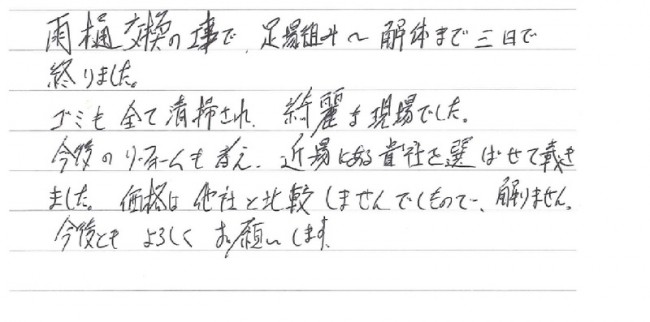 雨樋交換の工事で、足場組み〜解体まで三日で
終りました。
ゴミも全て清掃され、綺麗な現場でした。
今後のリフォームも考え、近場にある貴社を選ばせて戴き
ました。価格は他社と比較しませんでしたもので、解りません。
今後とも よろしく お願いします。